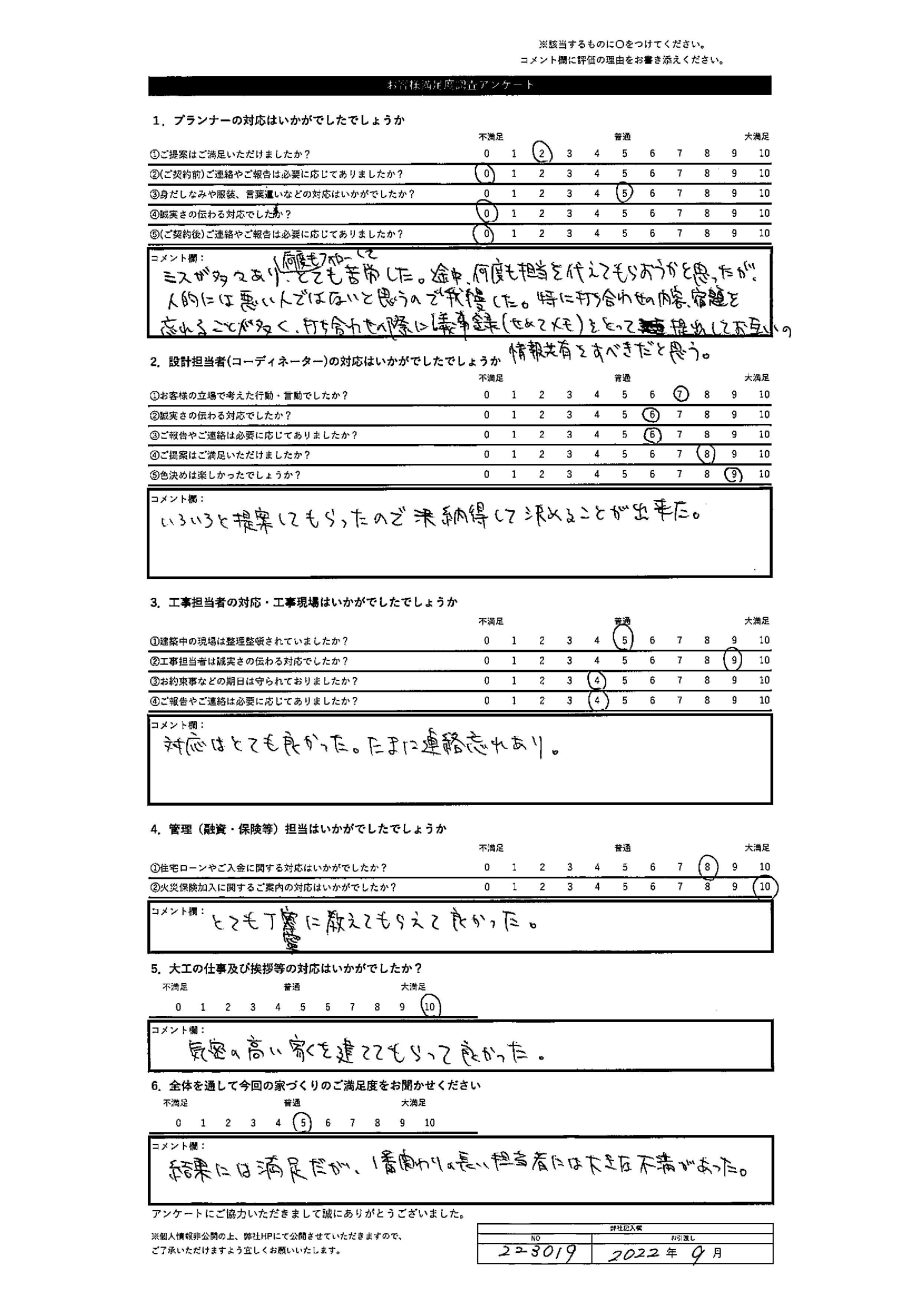 ※該当するものに〇をつけてください。
コメント欄に評価の理由をお書き添えください。
お客様満足度調査アンケート
1．プランナーの対応はいかがでしたでしょうか
不満足 普通 大満足
①ご提案はご満足いただけましたか？ 0 1 2 3 4 5 6 7 8 9 10
②(ご契約前)ご連絡やご報告は必要に応じてありましたか？ 0 1 2 3 4 5 6 7 8 9 10
③身だしなみや服装、言葉遣いなどの対応はいかがでしたか？ 0 1 2 3 4 5 6 7 8 9 10
④誠実さの伝わる対応でしたか？ 0 1 2 3 4 5 6 7 8 9 10
⑤(ご契約後)ご連絡やご報告は必要に応じてありましたか？ 0 1 2 3 4 5 6 7 8 9 10
コメント欄：
何度もフォローして
ミスが多々あり、とても苦労した。途中、何度も担当を代えてもらおうかと思ったが、
人的には悪い人ではないと思うので我慢した。特に打ち合わせの内容、宿題を
忘れることが多く、打ち合わせの際に議事録(せめてメモ)をとって提出してお互いの
情報共有をすべきだと思う。
2．設計担当者(コーディネーター)の対応はいかがでしたでしょうか
不満足 普通 大満足
①お客様の立場で考えた行動・言動でしたか？ 0 1 2 3 4 5 6 7 8 9 10
②誠実さの伝わる対応でしたか？ 0 1 2 3 4 5 6 7 8 9 10
③ご報告やご連絡は必要に応じてありましたか？ 0 1 2 3 4 5 6 7 8 9 10
④ご提案はご満足いただけましたか？ 0 1 2 3 4 5 6 7 8 9 10
⑤色決めは楽しかったでしょうか？ 0 1 2 3 4 5 6 7 8 9 10
コメント欄：
いろいろと提案してもらったので納得して決めることが出来た。
3．工事担当者の対応・工事現場はいかがでしたでしょうか
不満足 普通 大満足
①建築中の現場は整理整頓されていましたか？ 0 1 2 3 4 5 6 7 8 9 10
②工事担当者は誠実さの伝わる対応でしたか？ 0 1 2 3 4 5 6 7 8 9 10
③お約束事などの期日は守られておりましたか？ 0 1 2 3 4 5 6 7 8 9 10
④ご報告やご連絡は必要に応じてありましたか？ 0 1 2 3 4 5 6 7 8 9 10
コメント欄：
対応はとても良かった。たまに連絡忘れあり。
4．管理（融資・保険等）担当はいかがでしたでしょうか
不満足 普通 大満足
①住宅ローンやご入金に関する対応はいかがでしたか？ 0 1 2 3 4 5 6 7 8 9 10
②火災保険加入に関するご案内の対応はいかがでしたか？ 0 1 2 3 4 5 6 7 8 9 10
コメント欄：
とても丁寧に教えてもらえて良かった。
5．大工の仕事及び挨拶等の対応はいかがでしたか？
不満足 普通 大満足
0 1 2 3 4 5 6 7 8 9 10
コメント欄：
気密の高い家を建ててもらって良かった。
6．全体を通して今回の家づくりのご満足度をお聞かせください
不満足 普通 大満足
0 1 2 3 4 5 6 7 8 9 10
コメント欄：
結果には満足だが、1番関わりの長い担当者には大きな不満があった。
アンケートにご協力いただきまして誠にありがとうございました。
※個人情報非公開の上、弊社HPにて公開させていただきますので、
ご了承いただけますよう宜しくお願いいたします。
弊社記入欄
NO お引渡し
223019 2022年 9月